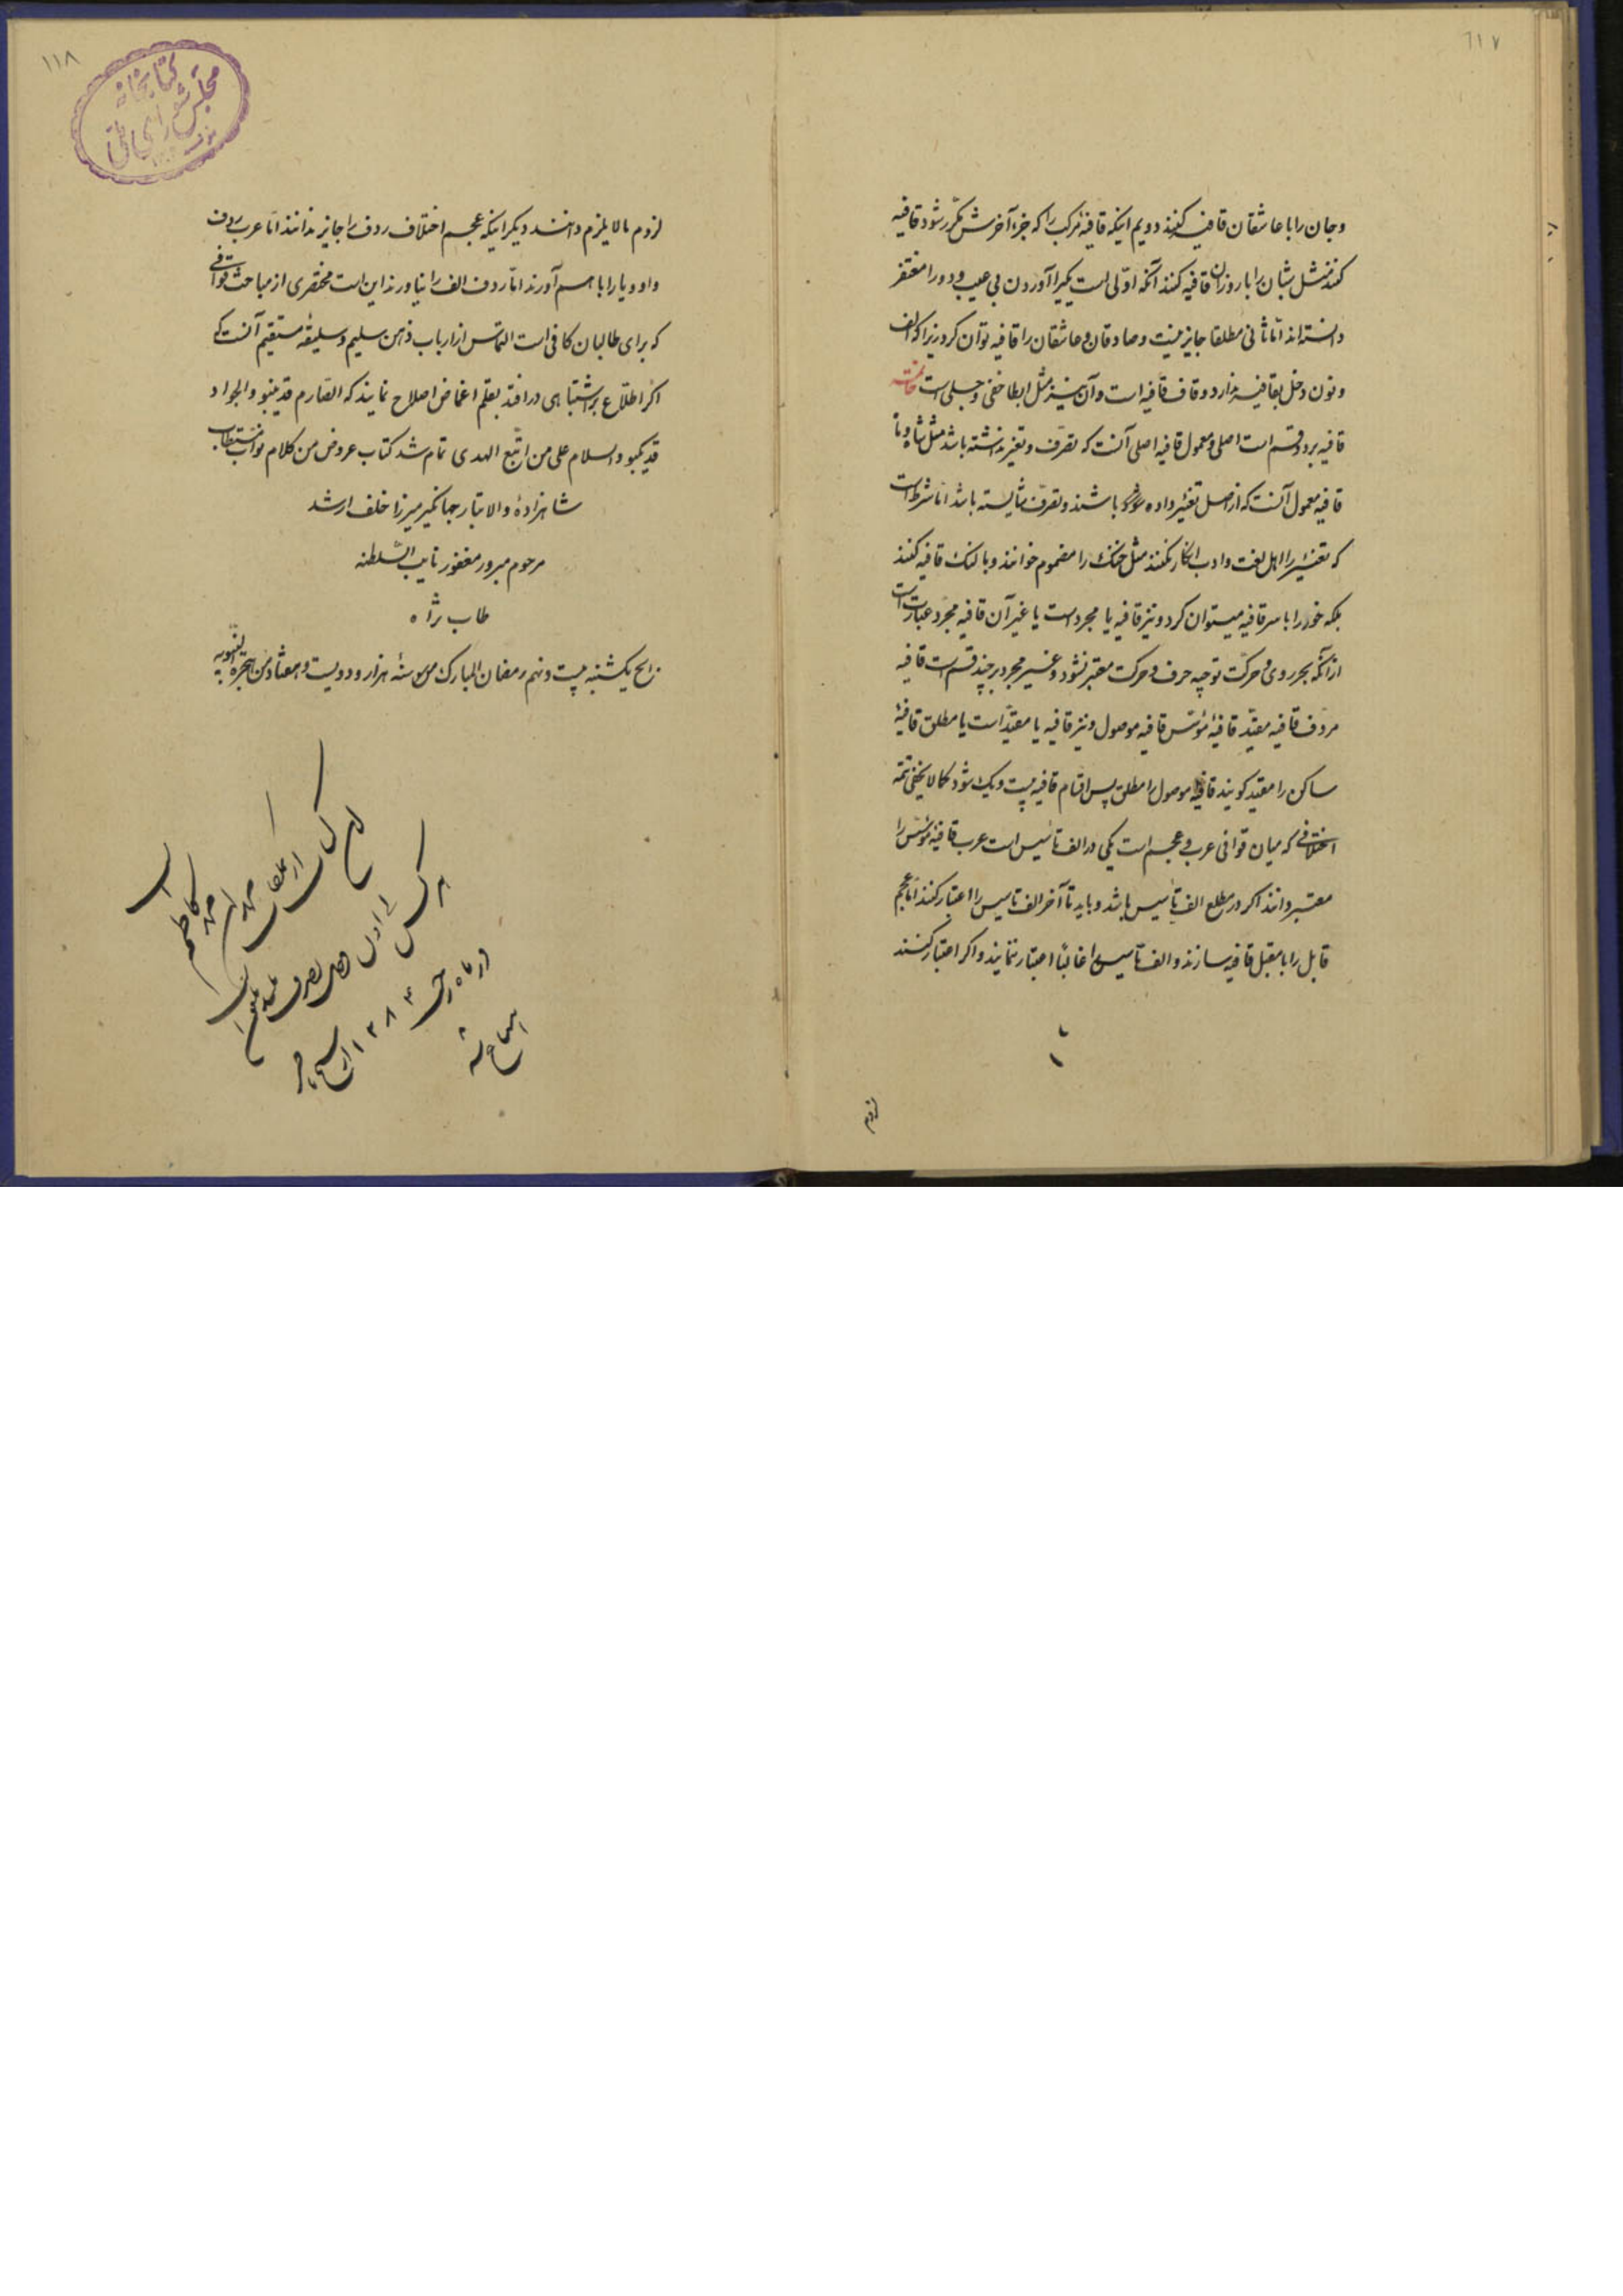 ٦١٧
وجان را با عاشقان قافیه کنند دویم اینکه قافیه مرکب را که جزء آخرش مکرر شود قافیه
کنند مثل شبان را با روزان قافیه کنند آنکه اولی است یکبار آوردن بی عیب و دو را مغتفر
دانسته اند اما ثانی مطلقا جایز نیست و صادقان و عاشقان را قافیه توان کرد زیرا که الف
و نون دخل بقافیه ندارد و قاف قافیه است و آن نیز مثل ایطا خفی و جلی است خاتمه
قافیه بر دو قسم است اصلی و معمول قافیه اصلی آنست که تصرف و تغیر نداشته باشد مثل شاه و ماه
قافیه معمول آنست که از اصل تغییر داده باشند و تصرف شایسته باشد اما شرط است
که تغییر را اهل لغت و ادب انکار نکنند مثل خنک را مضموم خوانند و با لنک قافیه کنند
بلکه خور را با سر قافیه میتوان کرد و نیز قافیه یا مجرد است یا غیر آن قافیه مجرد عبارت است
از آنکه بجز روی و حرکت توجیه حرف و حرکت معتبر نشود و غیر مجرد بر چند قسم است قافیه
مردف قافیه مقید قافیهٔ مؤسس قافیه موصول و نیز قافیه یا مقید است یا مطلق قافیهٔ
ساکن را مقید کویند قافیه موصول را مطلق پس اقسام قافیه بیست و یک شود کما لا یخفی تتمه
اختلافی که میان قوافی عرب و عجم است یکی در الف تاسیس است عرب قافیه مؤسس را
معتبر دانند اکر در مطلع الف تأسیس باشد و باید تا آخر الف تاسیس را اعتبار کنند اما عجم
قابل را با مقبل قافیه سازند و الف تاسیس را غالبا اعتبار ننمایند و اکر اعتبار کنند
لزوم
١١٨
کتابخانه
مجلس شورای ملی
لزوم مالا یلزم دانند دیکر اینکه عجم اختلاف ردف را جایز ندانند اما عرب ردف
واو و یا را با هم آورند اما ردف الف را نیاورند این است مختصری از مباحث قوافی
که برای طالبان کافی است التماس از ارباب ذهن سلیم و سلیقهٔ مستقیم آنست که
اکر اطلاع بر اشتباهی در افتد بقلم اغماض اصلاح نمایند که الصارم قد ینبو و الجواد
قد یکبو والسلام علی من اتبع الهدی تمام شد کتاب عروض من کلام نواب مستطاب
شاهزادهٔ والاتبار جهانکیر میرزا خلف ارشد
مرحوم مبرور مغفور نایب السلطنه
طاب ثراه
یکشنبه بیست و نهم رمضان المبارک سنهٔ هزار و دویست و هفتاد من الهجرة النبویه